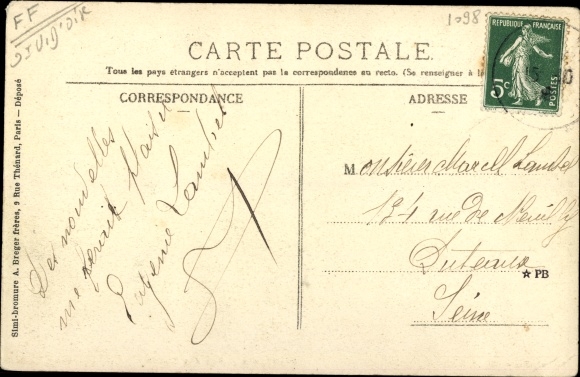 F.F
1098
CARTE POSTALE.
Tous les pays étrangers n'acceptent pas la correspondance au recto. (Se renseigner à la
REPUBLIQUE FRANÇAISE
5c
POSTES
CORRESPONDANCE
ADRESSE
Simi-bromure A. Breger Frères, 9 Rue Thénard, Paris — Déposé
Des nouvelles
me feraient plaisir
Eugénie Lambert
Monsieur Marcel Lambert
134 rue de Neuilly
Puteaux
☆ PB
Seine